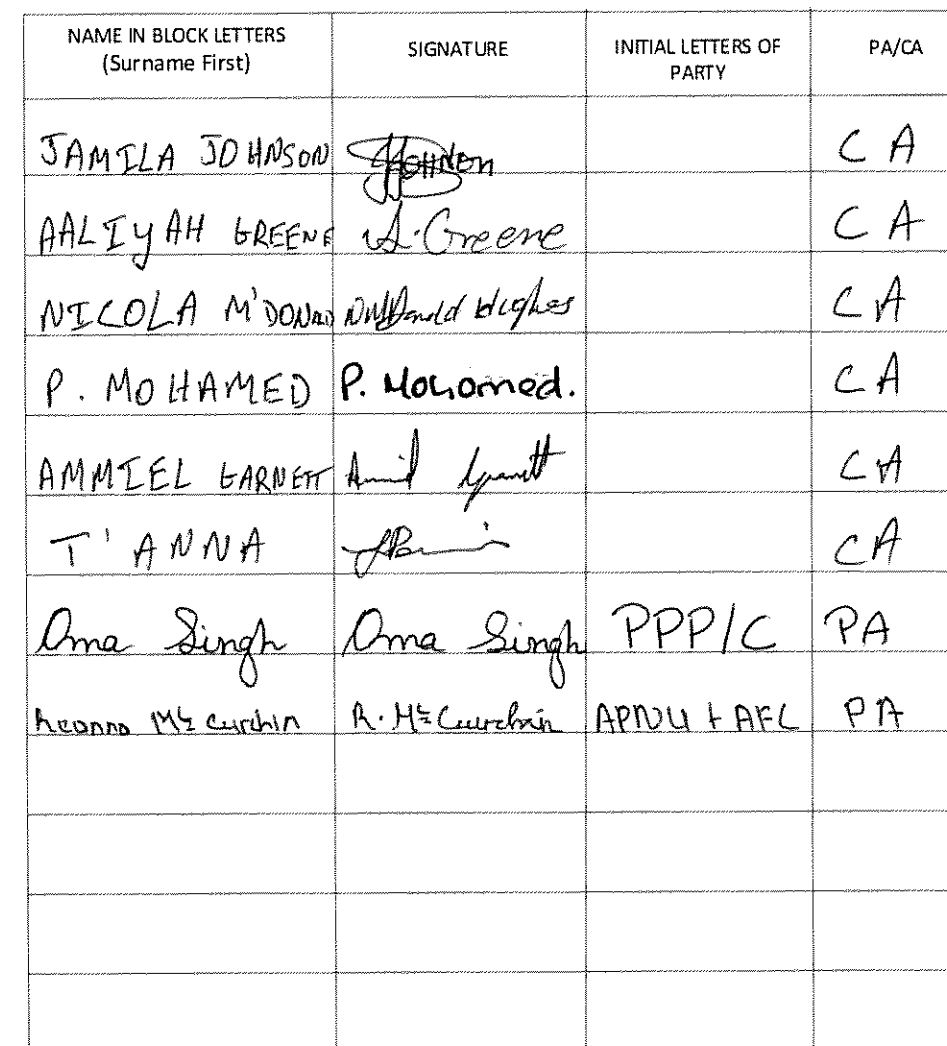 NAME IN BLOCK LETTERS (Surname First) SIGNATURE INITIAL LETTERS OF PARTY PA/CA
JAMILA JOHNSON CA
AALIYAH GREENE A. Greene CA
NICOLA M'DONALD Hughes CA
P. MOHAMED P. Mohomed. CA
AMMIEL GARNETT CA
T'ANNA CA
Oma Singh Oma Singh PPP/C PA
Mc Curchin R. Mc Curchin APNU + AFC PA